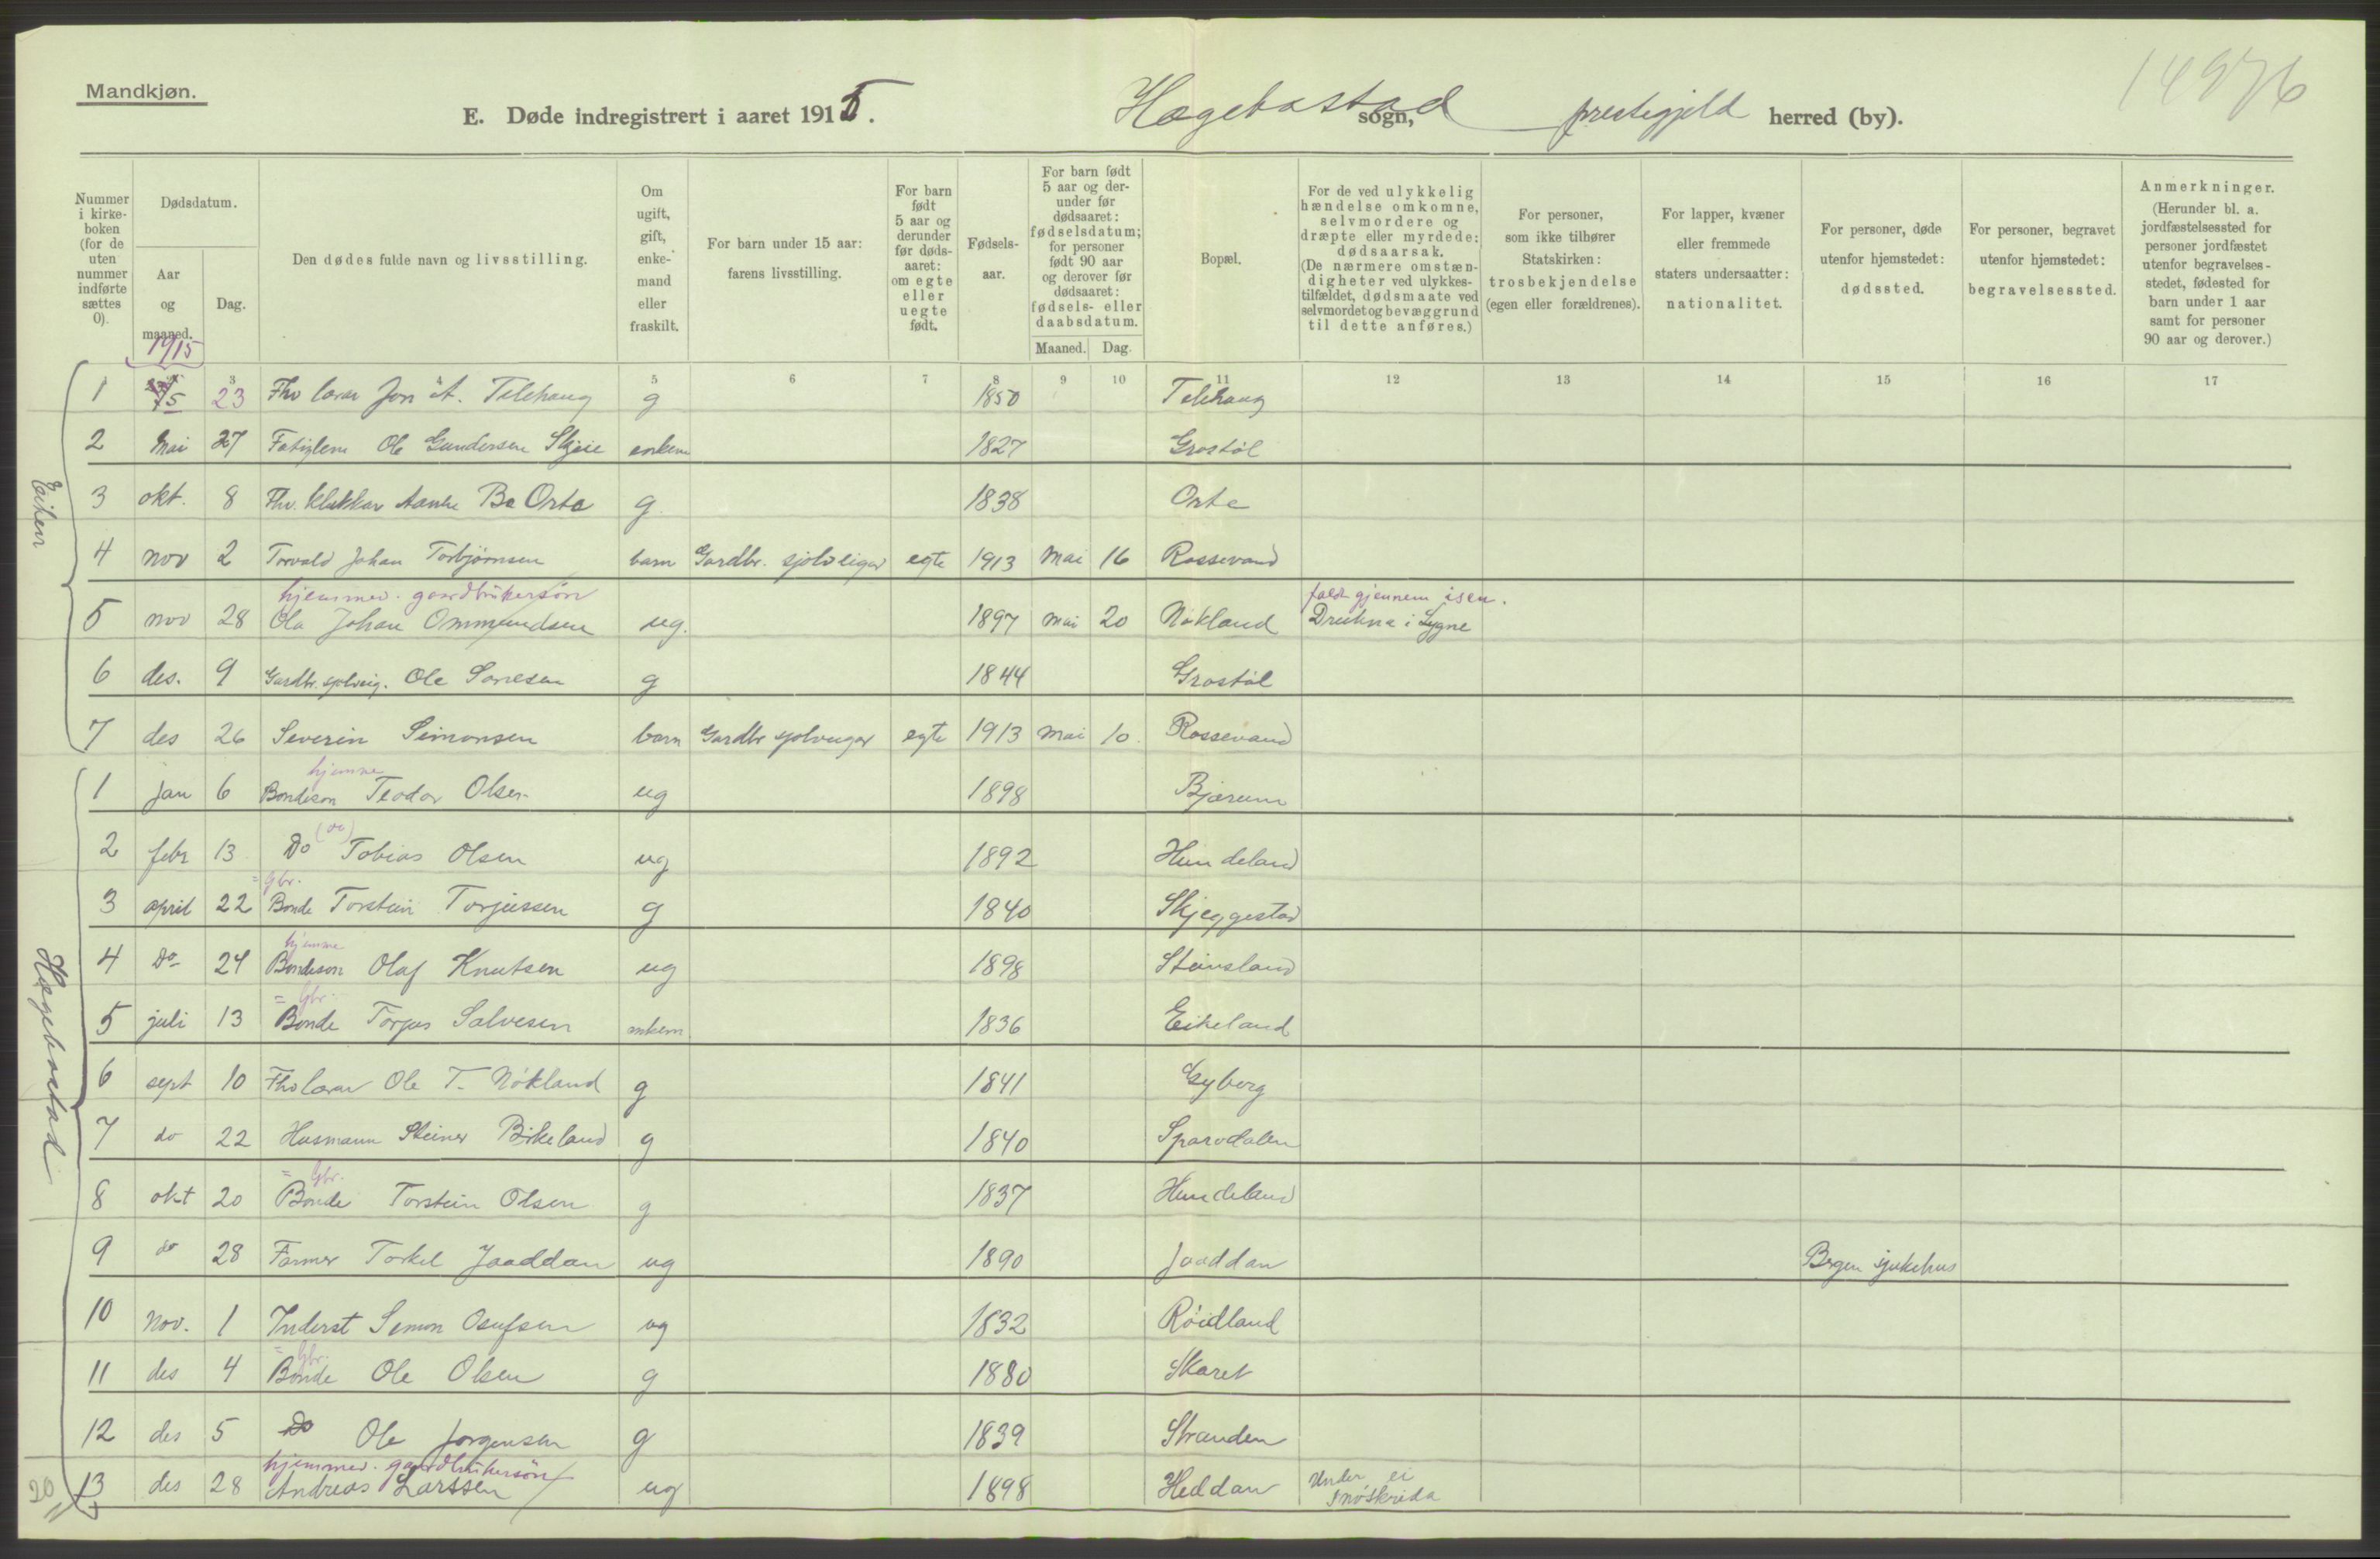 Mandkjøn.
14976
E. Døde indregistrert i aaret 1915. Hægebostad sogn, prestegjeld herred (by).
Nummer i kirkeboken (for de uten nummer indførte sættes 0).
Dødsdatum.
Aar og maaned.
Dag.
Den dødes fulde navn og livsstilling.
Om ugift, gift, enkemand eller fraskilt.
For barn under 15 aar: farens livsstilling.
For barn født 5 aar og derunder før dødsaaret: om egte eller uegte født.
Fødselsaar.
For barn født 5 aar og derunder før dødsaaret: fødselsdatum; for personer født 90 aar og derover før dødsaaret: fødsels- eller daabsdatum.
Maaned. Dag.
Bopæl.
For de ved ulykkelig hændelse omkomne, selvmordere og dræpte eller myrdede: dødsaarsak. (De nærmere omstændigheter ved ulykkestilfældet, dødsmaate ved selvmordet og bevæggrund til dette anføres.)
For personer, som ikke tilhører Statskirken: trosbekjendelse (egen eller forældrenes).
For lapper, kvæner eller fremmede staters undersaatter: nationalitet.
For personer, døde utenfor hjemstedet: dødssted.
For personer, begravet utenfor hjemstedet: begravelsessted.
Anmerkninger. (Herunder bl. a. jordfæstelsessted for personer jordfæstet utenfor begravelsesstedet, fødested for barn under 1 aar samt for personer 90 aar og derover.)
1915
3 5 6 7 8 9 10 11 12 13 14 15 16 17
Eiken
1 23 Fhv lærar Jon A. Telehaug g 1850 Telehaug
2 Mai 27 Fatiglem Ole Gundersen Skjeie enkem 1827 Grostøl
3 okt. 8 Fhv. klokkar Aanen Bo Orte g 1838 Orte
4 nov 2 Torvald Johan Torbjørnsen barn Gardbr. sjølveigar egte 1913 Mai 16 Rossevand
hjemmev. gaardbrukersøn faldt gjennem isen.
5 nov 28 Ola Johan Ommundsen ug. 1897 mai 20 Nøkland Drukna i Lygne
6 des. 9 Gardbr. sjølveig. Ole Sørresen g 1844 Grostøl
7 des 26 Severin Simonsen barn Gardbr sjølveigar egte 1913 Mai 10. Rossevand
Hægebostad
hjemme
1 jan 6 Bondeson Teodor Olsen ug 1898 Bjærum
(do)
2 febr 13 Do Tobias Olsen ug 1892 Hundeland
= gbr.
3 april 22 Bonde Torstein Torjussen g 1840 Skjeggestad
hjemme
4 Do 24 Bondeson Olaf Knutsen ug 1898 Steinsland
= Gbr.
5 juli 13 Bonde Torjus Salvesen enkem 1836 Eikeland
6 sept 10 Fhv lærar Ole T. Nøkland g 1841 Gyberg
7 do 22 Husmann Steiner Birkeland g 1840 Sparvdalen
= Gbr.
8 okt 20 Bonde Torstein Olsen g 1837 Hundeland
9 do 28 Farmer Torkel Jaaddan ug 1890 Jaaddan Bergen sjukehus
10 Nov. 1 Inderst Simon Osufsen ug 1832 Røidland
= Gbr.
11 des 4 Bonde Ole Olsen g 1880 Skaret
12 des 5 Do Ole Jørgensen g 1839 Stranden
hjemmev. gaardbrukersøn
13 des 28 Andreas Larssen ug 1898 Heddan Under ei snøskrida
20